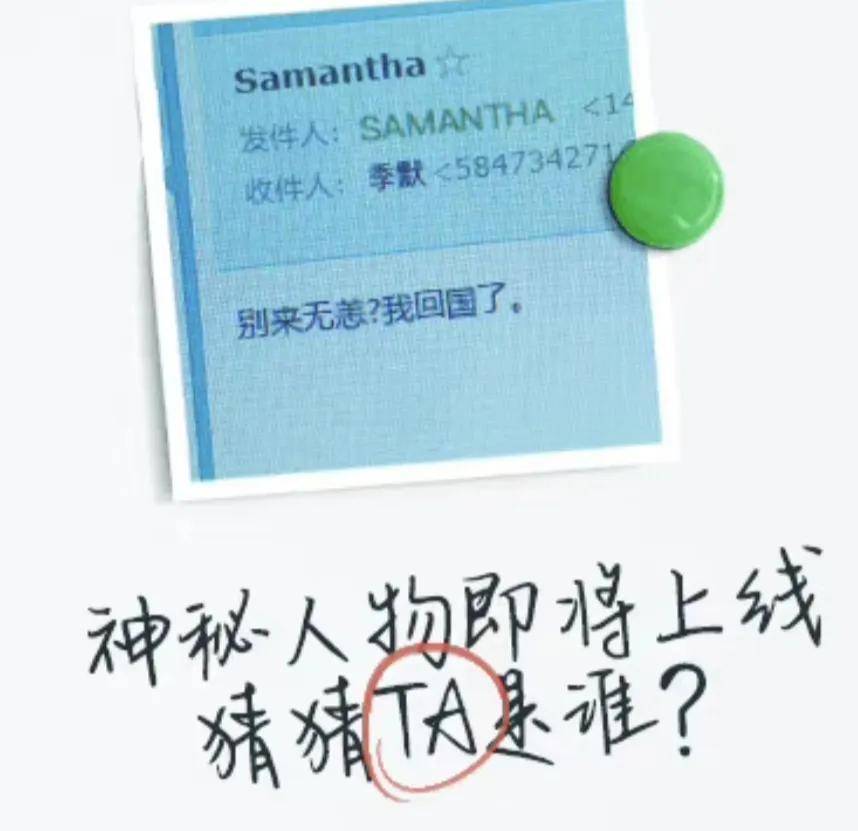 Samantha ☆
发件人: SAMANTHA <14
收件人: 季默 <584734271
别来无恙?我回国了。
神秘人物即将上线
猜猜TA是谁?